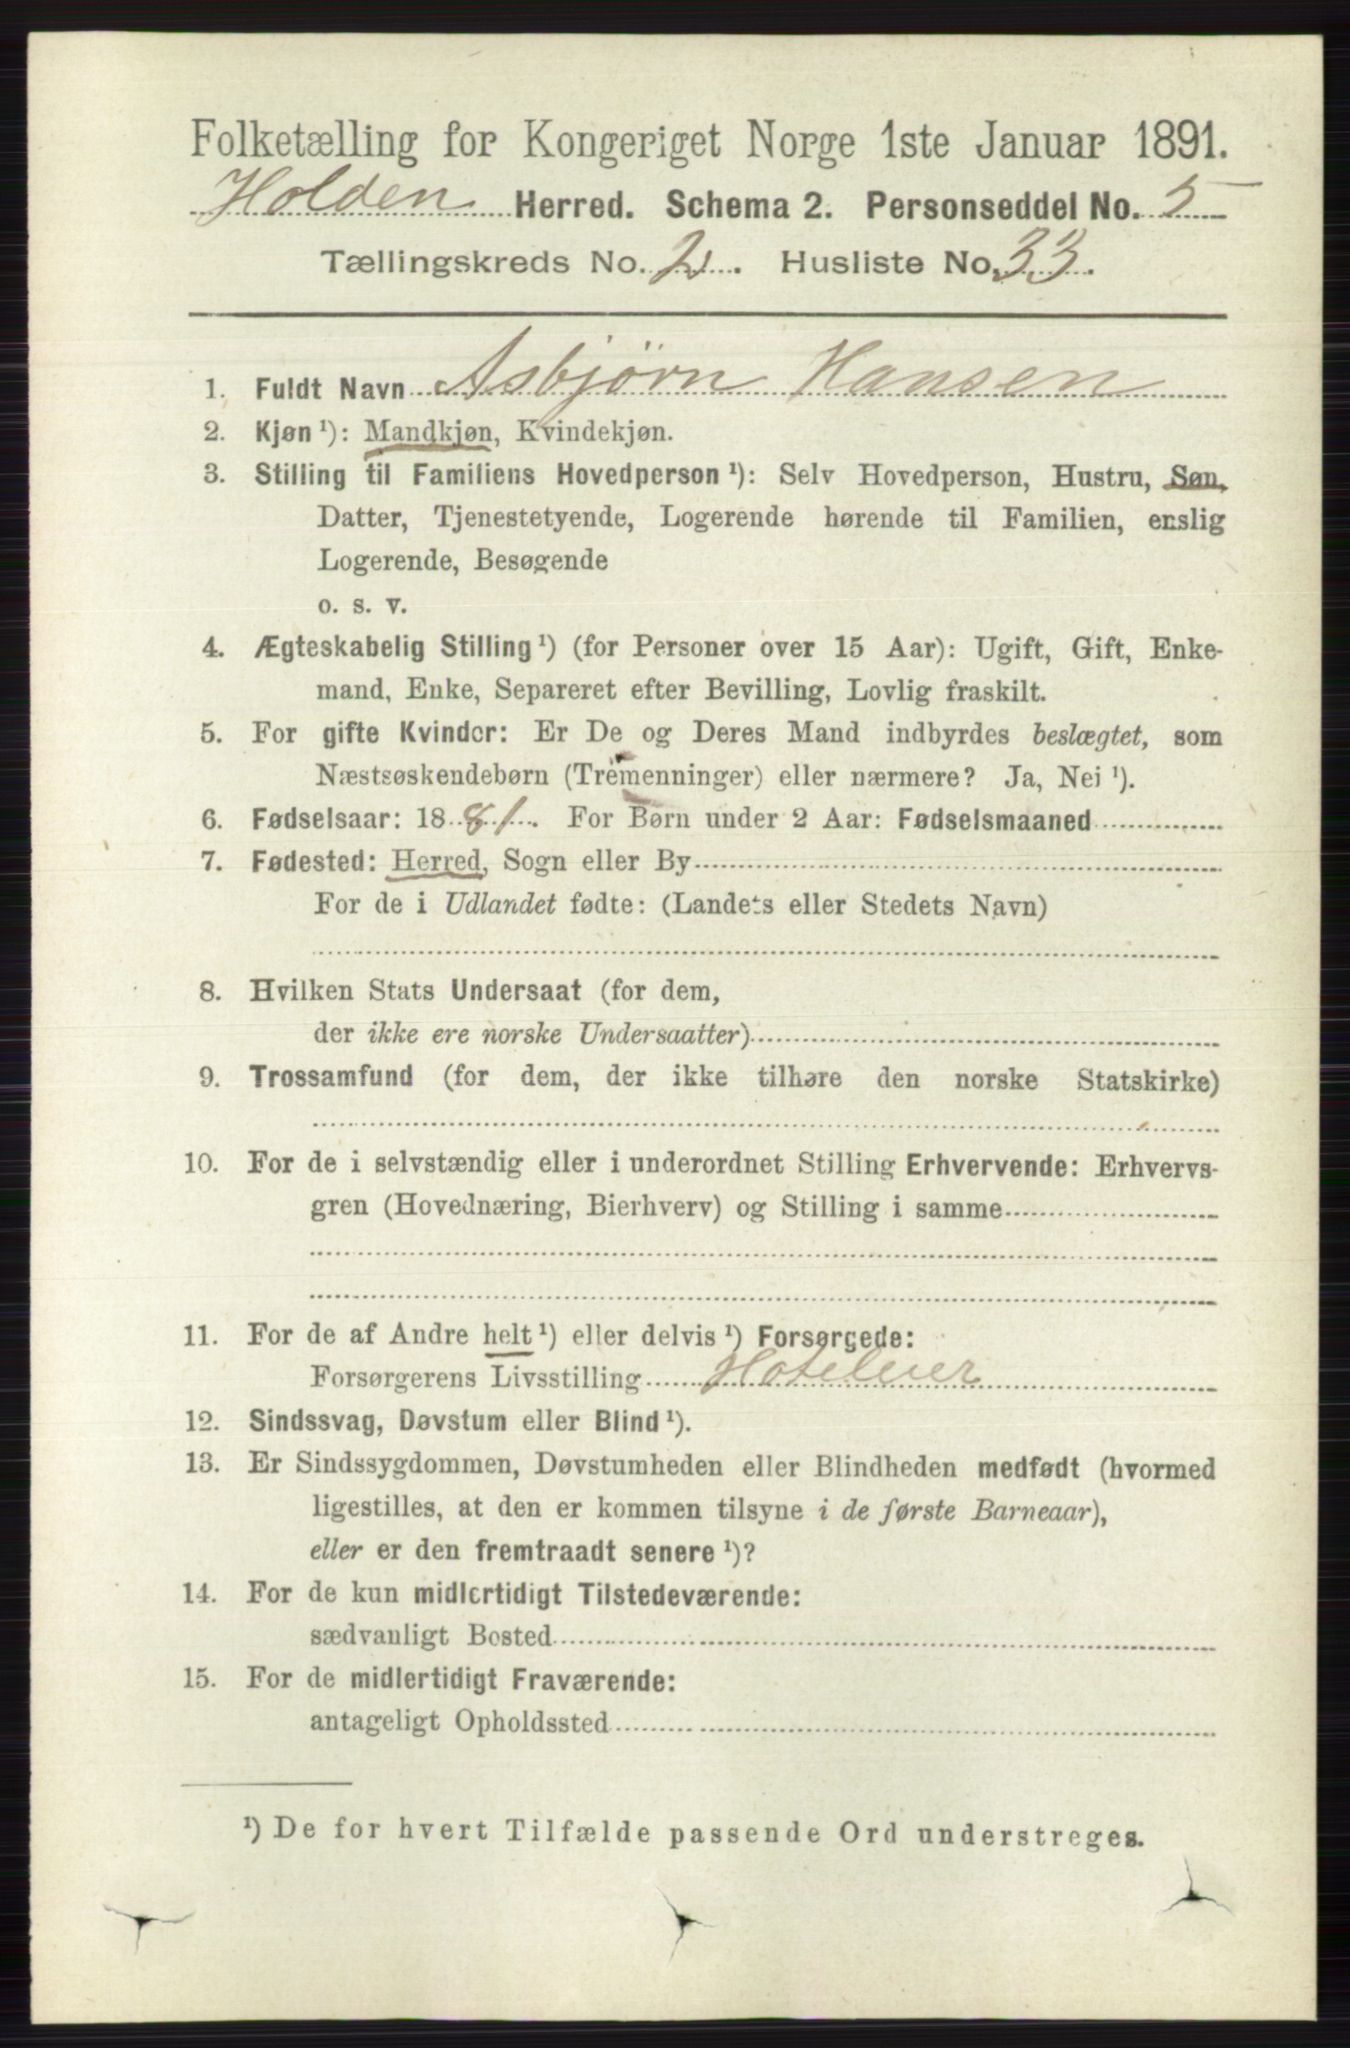 Folketælling for Kongeriget Norge 1ste Januar 1891.
Holden Herred. Schema 2. Personseddel No. 5
Tællingskreds No. 2. Husliste No. 33.
1. Fuldt Navn Asbjørn Hansen
2. Kjøn ¹): Mandkjøn, Kvindekjøn.
3. Stilling til Familiens Hovedperson ¹): Selv Hovedperson, Hustru, Søn,
Datter, Tjenestetyende, Logerende hørende til Familien, enslig
Logerende, Besøgende
o. s. v.
4. Ægteskabelig Stilling ¹) (for Personer over 15 Aar): Ugift, Gift, Enke-
mand, Enke, Separeret efter Bevilling, Lovlig fraskilt.
5. For gifte Kvinder: Er De og Deres Mand indbyrdes beslægtet, som
Næstsøskendebørn (Tremenninger) eller nærmere? Ja, Nei ¹).
6. Fødselsaar: 1881. For Børn under 2 Aar: Fødselsmaaned
7. Fødested: Herred, Sogn eller By
For de i Udlandet fødte: (Landets eller Stedets Navn)
8. Hvilken Stats Undersaat (for dem,
der ikke ere norske Undersaatter)
9. Trossamfund (for dem, der ikke tilhøre den norske Statskirke)
10. For de i selvstændig eller i underordnet Stilling Erhvervende: Erhvervs-
gren (Hovednæring, Bierhverv) og Stilling i samme
11. For de af Andre helt ¹) eller delvis ¹) Forsørgede:
Forsørgerens Livsstilling Hoteleier
12. Sindssvag, Døvstum eller Blind ¹).
13. Er Sindssygdommen, Døvstumheden eller Blindheden medfødt (hvormed
ligestilles, at den er kommen tilsyne i de første Barneaar),
eller er den fremtraadt senere ¹)?
14. For de kun midlertidigt Tilstedeværende:
sædvanligt Bosted
15. For de midlertidigt Fraværende:
antageligt Opholdssted
¹) De for hvert Tilfælde passende Ord understreges.